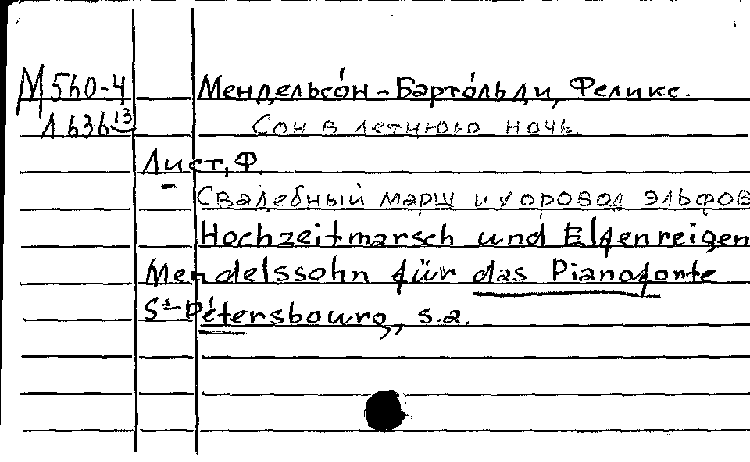 М 560-4 Мендельсо́н-Барто́льди, Феликс.
Л 636 13 Сон в летнюю ночь.
Лист, Ф.
Свадебный марш и хоровод эльфов
Hochzeitmarsch und Elfenreigen
Mendelssohn für das Pianoforte
St-Pétersbourg, s.a.